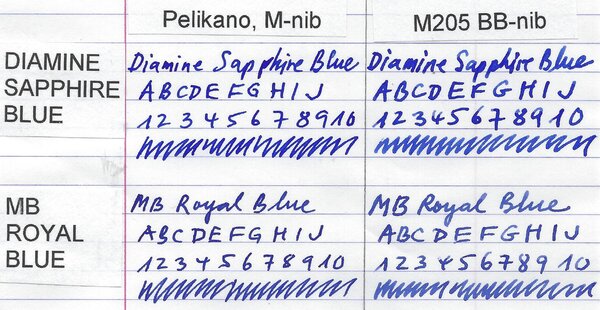 Pelikano, M-nib
M205 BB-nib
DIAMINE
SAPPHIRE
BLUE
Diamine Sapphire Blue
ABCDEFGHIJ
1 2 3 4 5 6 7 8 9 10
Diamine Sapphire Blue
ABCDEFGHIJ
1 2 3 4 5 6 7 8 9 10
MB
ROYAL
BLUE
MB Royal Blue
ABCDEFGHIJ
1 2 3 4 5 6 7 8 9 10
MB Royal Blue
ABCDEFGHIJ
1 2 3 4 5 6 7 8 9 10